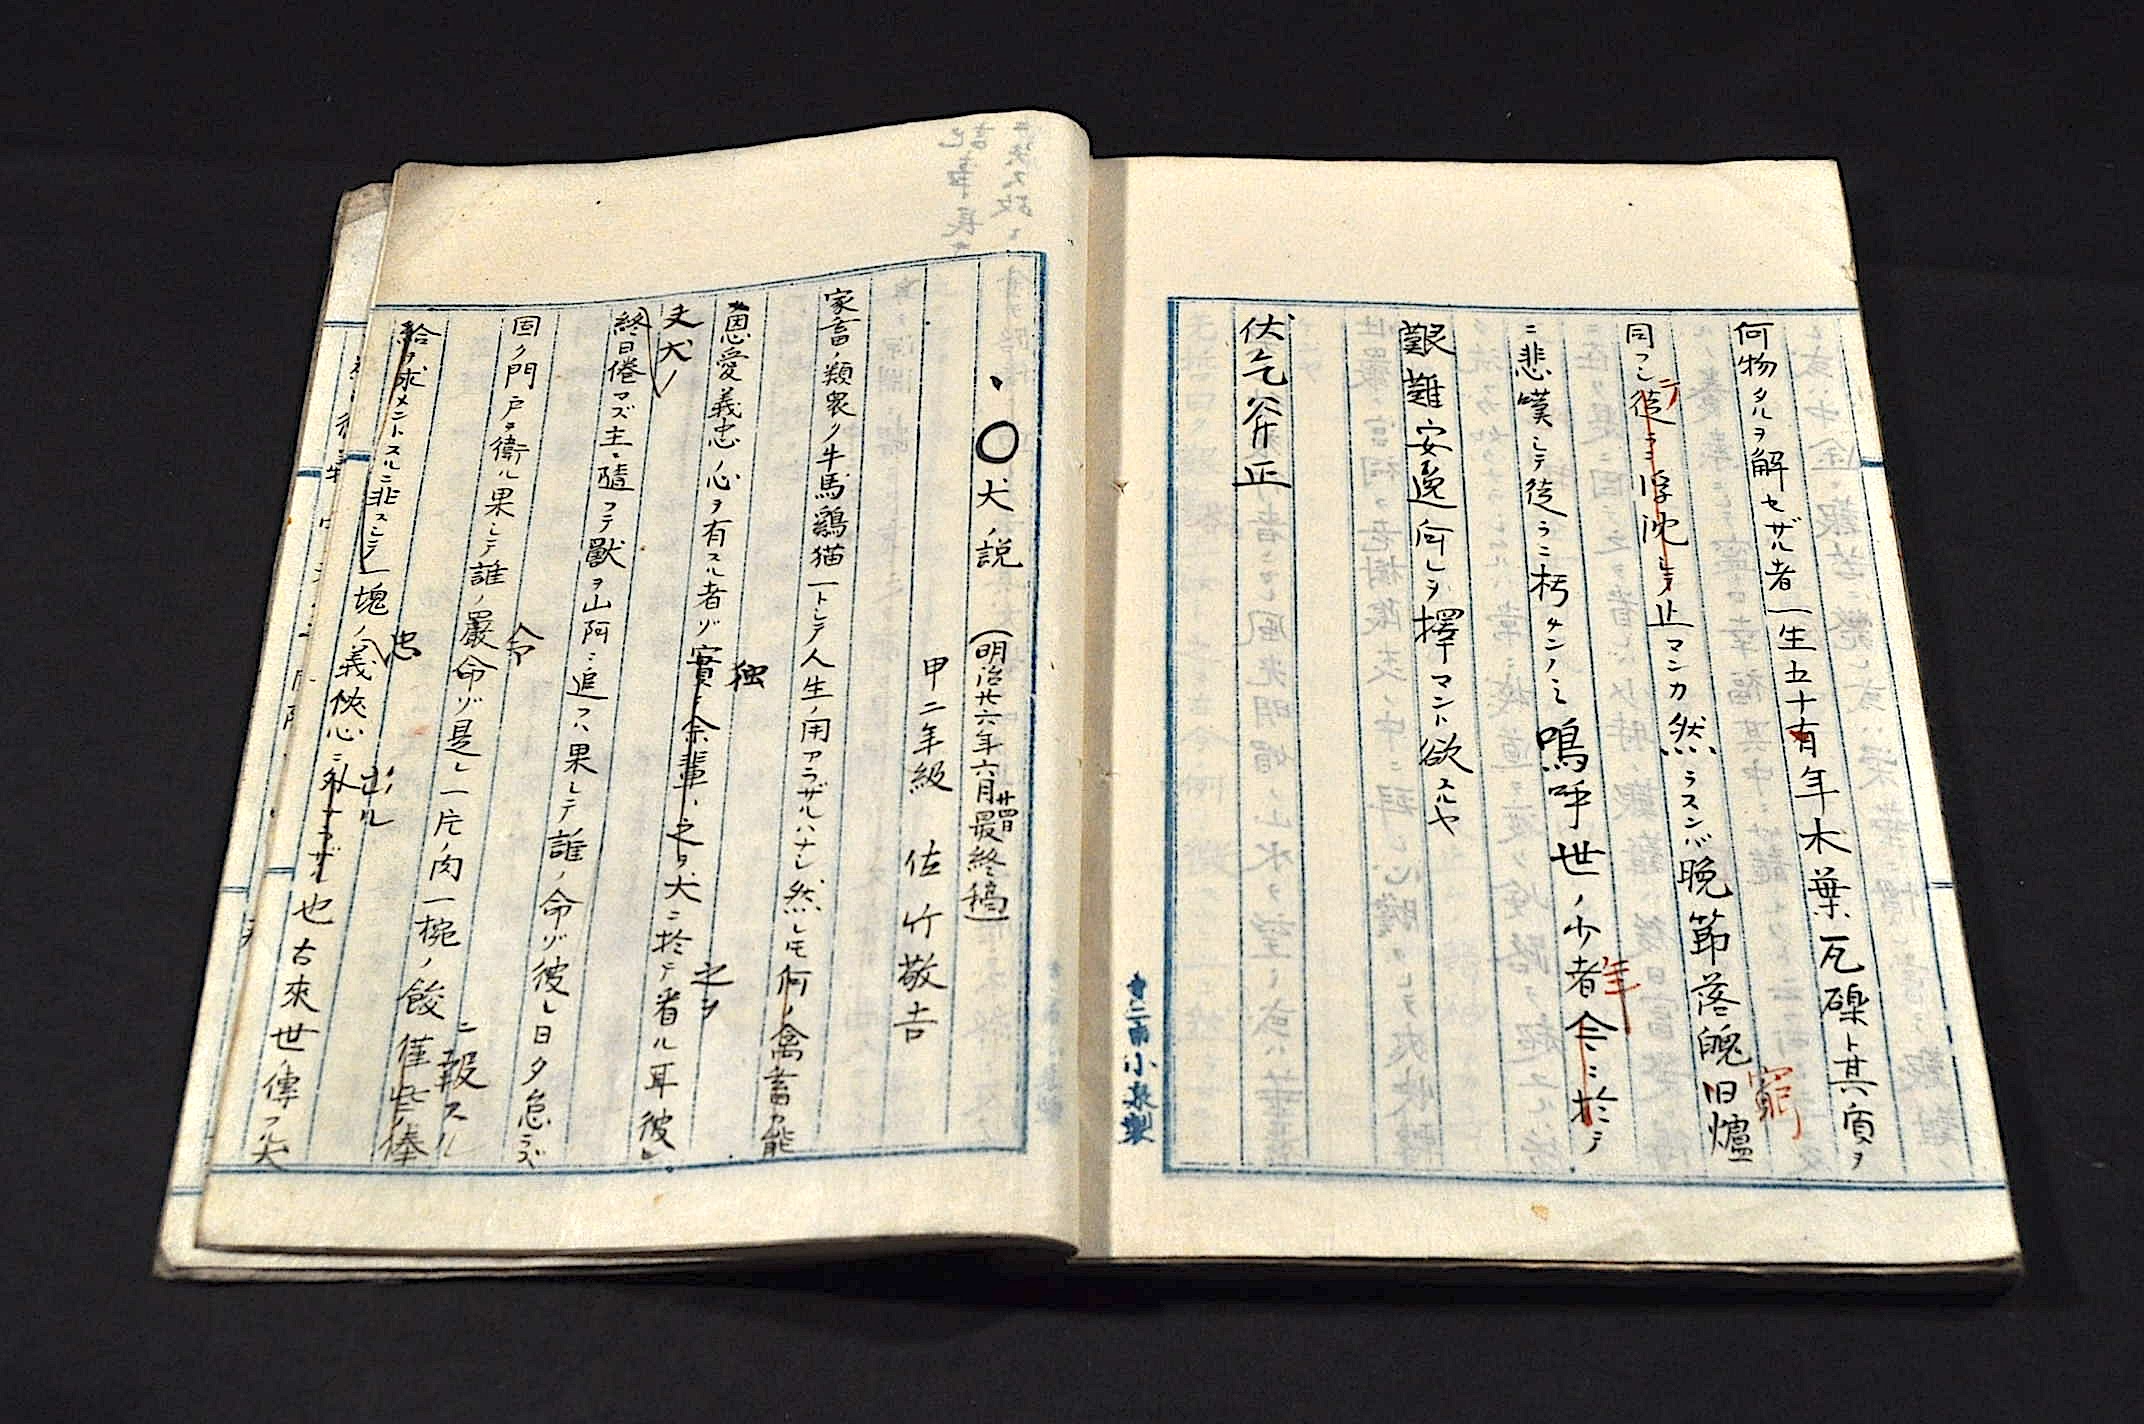 何物タルヲ解セザル者一生五十有年木葉瓦礫ト其質ヲ
同フシ徒ラニ浮沈シテ止マンカ然ラスンバ晩節落魄旧爐
ニ悲嘆シテ徒ラニ朽ケンノミ嗚呼世ノ少者今ニ於テ
テ
窮
年
艱難安逸何レヲ擇マント欲スルヤ
伏乞斧正
小泉製
、〇犬ノ説 (明治廿六年六月廿四日最終稿)
甲二年級 佐竹敬吉
家畜ノ類衆ク牛馬鷄猫一トシテ人生ノ用アラザルハナシ然レモ何ノ禽畜カ能
恩愛義忠ノ心ヲ有スル者ゾ實ニ余輩ハ之ヲ犬ニ於テ看ル耳彼レ
独
之ヲ
夫犬ノ
終日倦マズ主ニ隨フテ獸ヲ山阿ニ追フハ果シテ誰ノ命ゾ彼レ日夕怠ラズ
固ク門戸ヲ衛ル果シテ誰ノ嚴命ゾ是レ一片ノ肉一椀ノ餕僅些ノ俸
令
ニ報スル
給ヲ求メントスルニ非スシテ一塊ノ義侠心ニ外ナラザル也古來世傳フ犬
忠
出ル